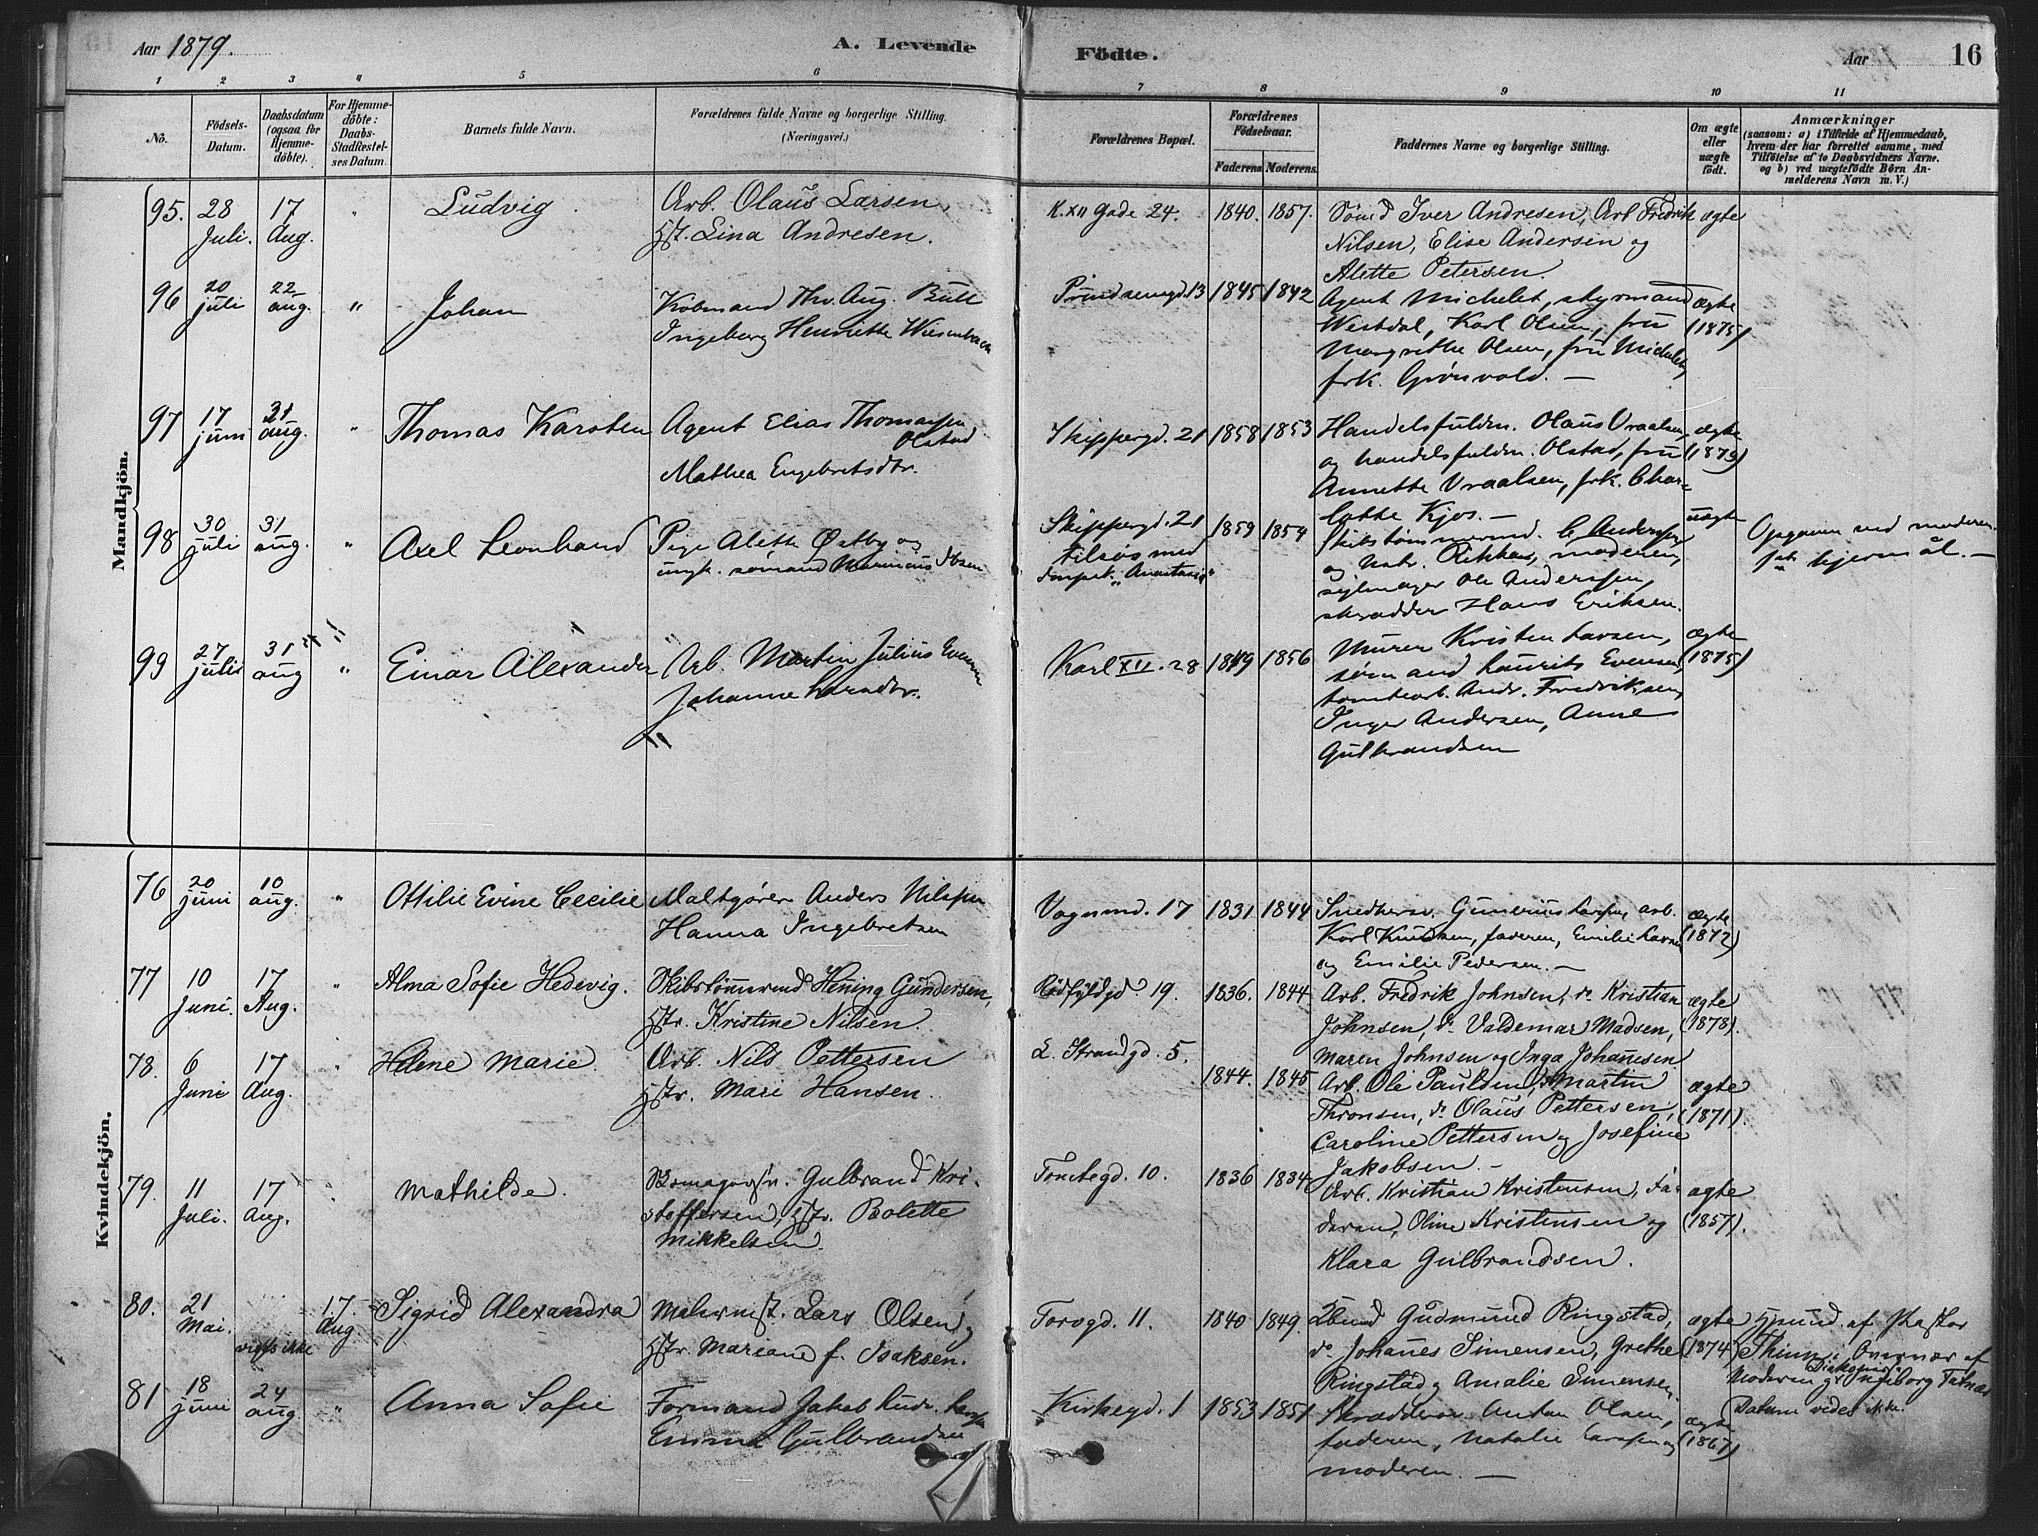 Aar 1879.
A. Levende
Födte.
Aar
16
1 2 3 4 5 6 7 8 9 10 11
No.
Födsels-Datum.
Daabsdatum (ogsaa for Hjemme-döbte).
For Hjemme-döbte: Daabs-Stadfæstel-ses Datum.
Barnets fulde Navn.
Forældrenes fulde Navne og borgerlige Stilling. (Næringsvei.)
Forældrenes Bopæl.
Forældrenes Födselsaar.
Faderens Moderens.
Faddernes Navne og borgerlige Stilling.
Om ægte eller uægte födt.
Anmærkninger (saasom: a) i Tilfælde af Hjemmedaab, hvem der har forrettet samme, med Tilföielse af to Daabsvidners Navne. og b) ved uægtefödte Börn An-melderens Navn m. V.)
Mandkjön.
95. 28 Juli. 17 Aug. " Ludvig
Arb. Olaus Larsen,
Hst. Lina Andresen.
K. XII Gade 24. 1840. 1857.
Sømd Iver Andresen, Arb Fredrik
Nilsen, Elise Andersen og
Alette Petersen.
ægte
96 20 juli 22 aug. " Johan
Købmand Thv. Aug. Bull
Ingeborg Henriette
Prindsensgd. 13 1845 1842
Agent Michelet, styrmand
Westdal, Karl Olsen, fru
Margrethe Olsen, fru Michelet,
frk. Grønvold. —
ægte (1875)
97 17 juni 31 aug. " Thomas Karsten
Agent Elias Thomassen
Olstad
Mathea Engebretsdtr.
Skippergd. 21 1858 1853
Handelsfuldm. Olaus Vraalsen,
og handelsfuldm. Olstad, fru
Annette Vraalsen, frk. Char=
lotte Kjos. —
ægte
98 30 juli 31 aug. " Axel Leonhard
Pige Alette Østby og
ungk. sømand Marinius
Skippergd. 21
tilsøs med
"Anastasia"
1859 1854
Skibstømmermd. C. Andersen
og Nabr. Rikke, moderen,
sejlmager Ole Anderssen,
skrædder Hans Eriksen.
uægte
Opgaven ved moderen.
hjerm ål. —
99 27 juli 31 aug " Einar Alexander
Arb. Martin Julius Evensen
Johanne Larsdtr.
Karl XII. 28 1849 1856
Murer Kristen Larsen,
sømand Laurits Evensen,
tomtearb. Andr. Fredriksen,
Inger Andersen, Anne
Gulbrandsen
ægte (1875)
Kvindekjön.
76 20 juni 10 aug. " Ottilie Evine Cecilie
Maltgører Anders Nilssen
Hanna Ingebretsen
Vognmd. 17 1831 1844
Snedkersv. Gunerius Larsen, arb.
Karl Knudsen, faderen, Emilie
og Emilie Pedersen. —
ægte (1872)
77 10 Juni. 17 Aug. " Alma Sofie Hedevig.
Skibstømmermd Hening Gundersen,
Hstr. Kristine Nilsen.
Rødfyldgd. 19. 1836. 1844.
Arb. Fredrik Johnsen, do Kristian
Johnsen, do Valdemar Madsen,
Maren Johnsen og Inga Johannesen
ægte (1878).
78. 6 Juni 17 Aug. " Helene Marie.
Arb. Nils Pettersen
Hstr. Mari Hansen.
L. Strandgd. 5. 1844. 1845
Arb. Ole Paulsen, do Martin
Thronsen, do Olaus Pettersen,
Caroline Pettersen og Josefine
Jakobsen. —
ægte (1871).
79. 11 Juli. 17 Aug. " Mathilde.
Gulbrand Kri-
stoffersen, Hstr. Bolette
Mikkelsen.
Tomtegd. 10. 1836 1834
Arb. Kristian Kristensen, Fa-
deren, Oline Kristensen og
Klara Gulbrandsen.
ægte (1857).
80. 21 Mai. vides ikke 17. Aug. Sigrid Alexandra
Malermst. Lars Olsen og
Hstr. Mariane f. Isaksen.
Torvgd. 11. 1840 1849.
Gudmund Ringstad,
do Johannes Simensen, Grethe
Ringstad og Amalie Simensen.
ægte (1874)
Hjemmd. af Pastor
Thinn i Overvær af
Moderen og Diakonisse Ingeborg
Datum vides ikke.
81 18 juni 24 aug. " Anna Sofie
Formand Jakob Ludv.
Emma Gulbrandsen
Kirkegd. 1 1853 1851
Skrædder Anton Olsen,
faderen, Natalie Larssen og
moderen. —
ægte (1867)